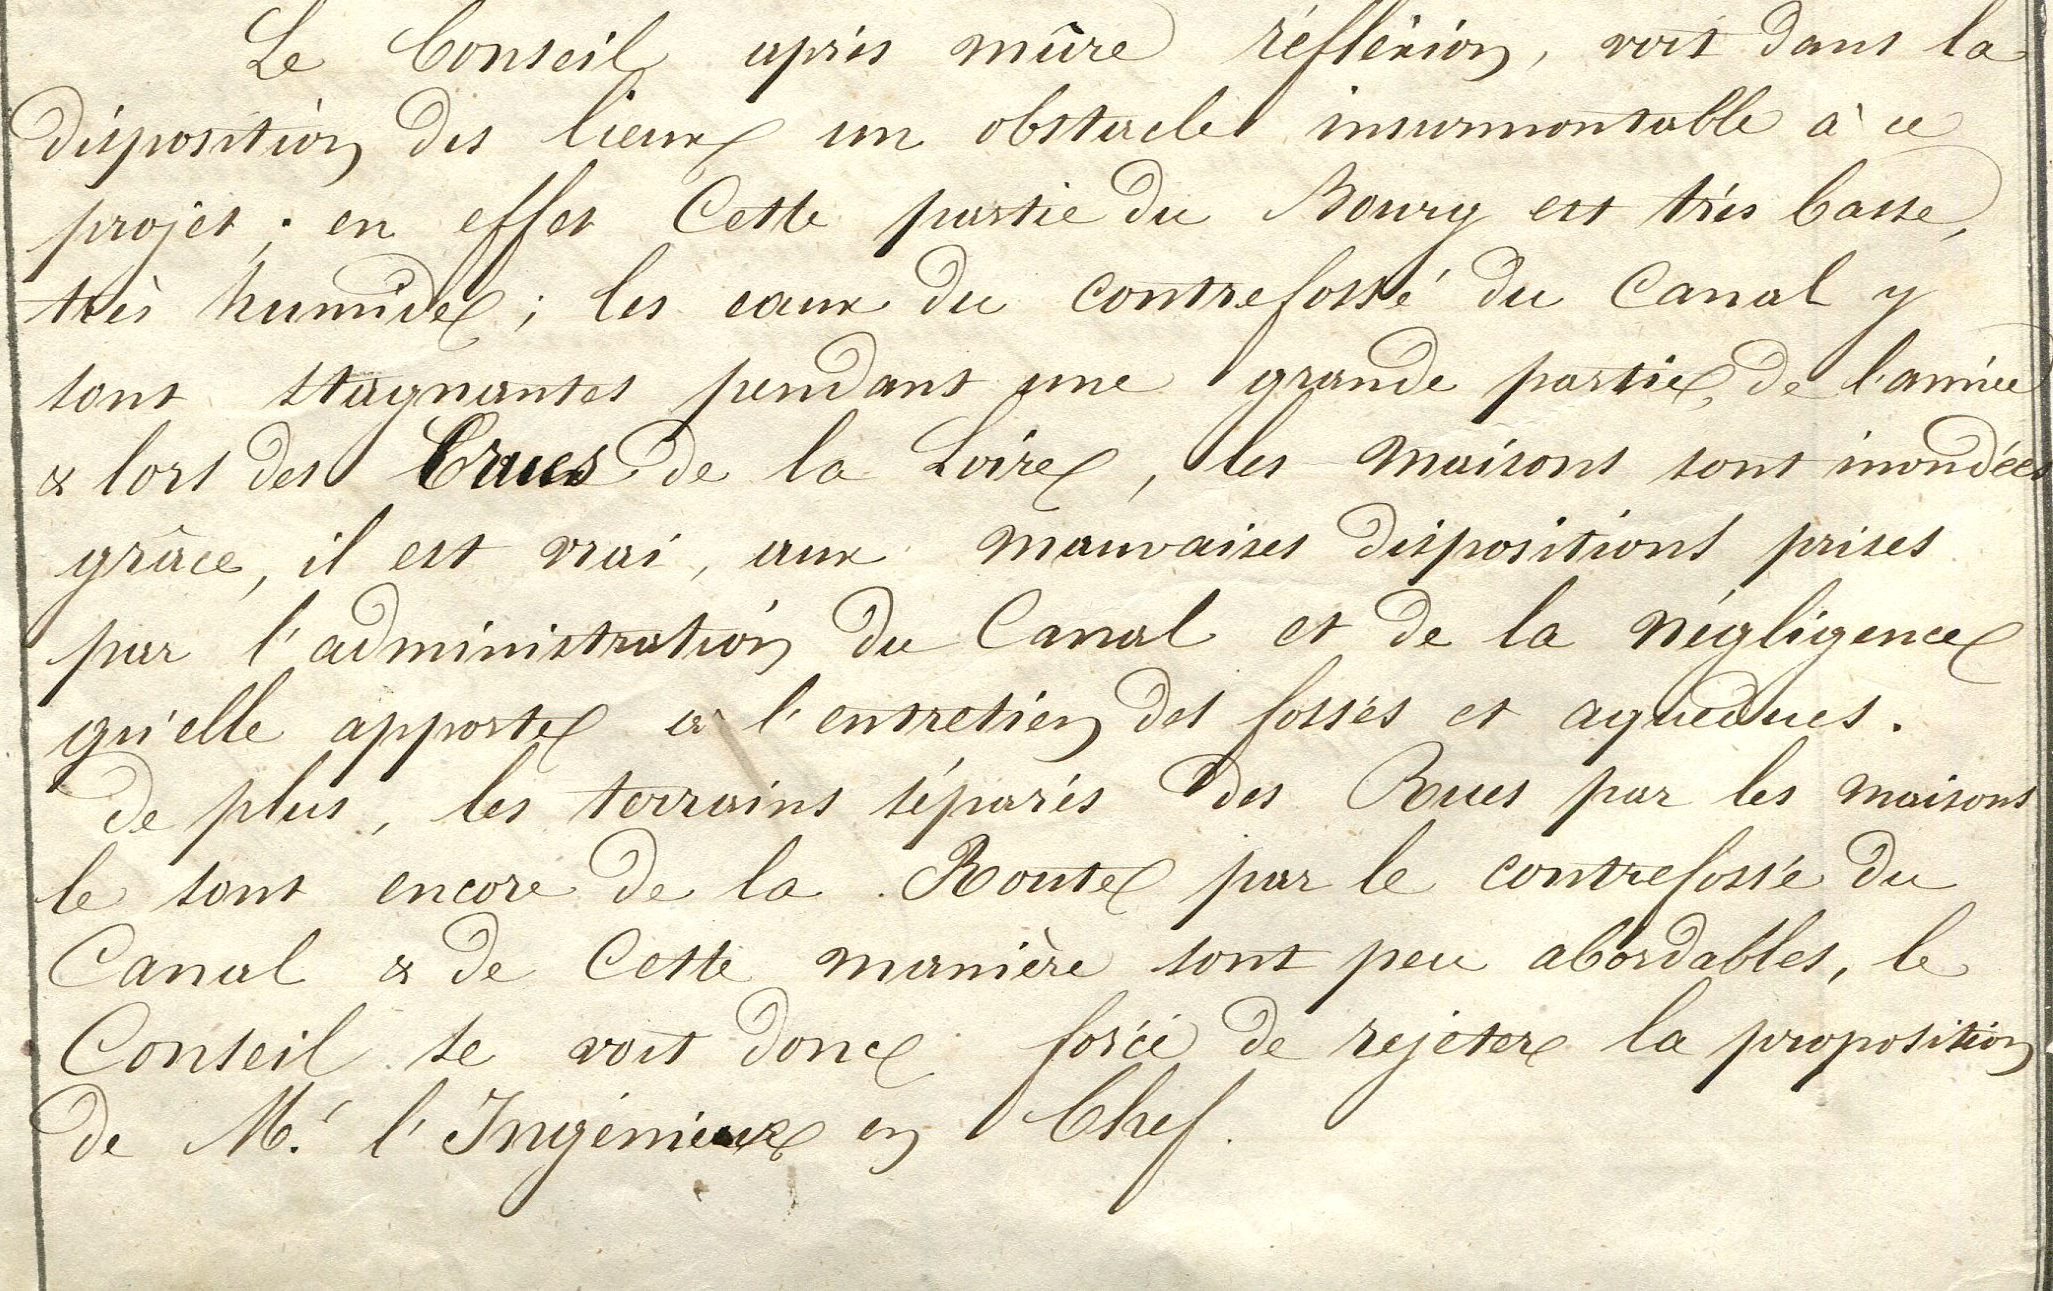 Le Conseil après mûre réflèxion, voit dans la
disposition des lieux un obstacle insurmontable à ce
projet ; en effet Cette partie du Bourg est très basse,
très humide ; les eaux du contrefossé du Canal y
sont stagnantes pendant une grande partie, de l'année
& lors des Crues de la Loire, les maisons sont inondées
grâce, il est vrai, aux mauvaises dispositions prises
par l'administration du Canal et de la négligence
qu'elle apporte à l'entretien des fossés et aqueducs.
de plus, les terrains séparés des Rues par les maisons
le sont encore de la Route par le contrefossé du
Canal & de Cette manière sont peu abordables, le
Conseil se voit donc forcé de rejeter la proposition
de M.r l'Ingénieur en Chef.